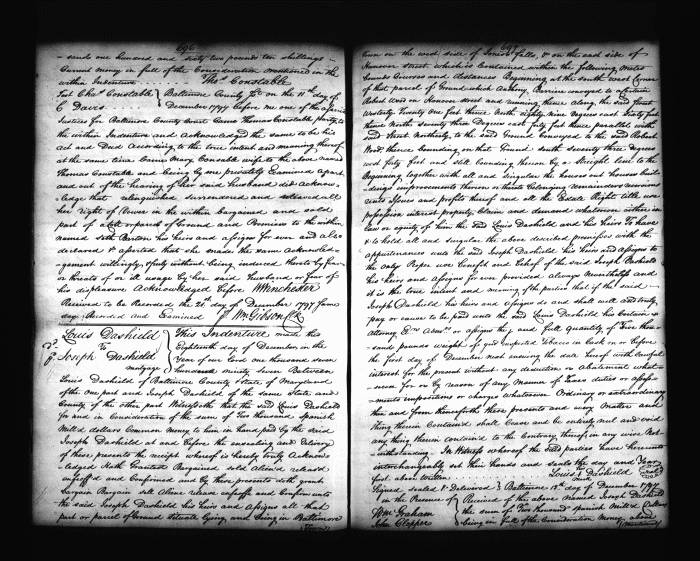 696
sand one hundred and sixty two pounds ten shillings
Current money in full of the Consideration mentioned in the
within Indenture Thos. Constable
Test Chas. Constable } Baltimore County Sc. on the 11th day of
G Davis } December 1797 before me one of the
Justices for Baltimore County Came Thomas Constable party to
the within Indenture and Acknowledged the same to be his
act and Deed According to the true intent and meaning thereof
at the same time Came Mary Constable wife to the above named
Thomas Constable and being by me privately Examined apart
and out of the hearing of her said husband did acknow
ledge that relinquished surrendered and released all
her right of Dower in the within bargained and sold
part of a Lott or parcel of Ground and Premises to the within
named Seth Barton his heirs and assigns for ever and also
declared & asserted that she made the same acknowled
gement willingly & freely without being induced thereto by fear
or threats of or ill usage by her said husband or fear of
his displeasure Acknowledged before W Winchester
Received to be Recorded the 21st day of December 1797 same
day Recorded and Examined Wm Gibson Clk
Louis Dashield } This Indenture made this
To } Eighteenth day of December in the
Joseph Dashield } Year of our Lord one thousand seven
mortgage } hundred ninety seven Between
Louis Dashield of Baltimore County State of Maryland
of the one part and Joseph Dashield of the same State and
County of the other part Witnesseth that the said Louis Dashield
for and in Consideration of the sum of Two thousand Spanish
Mill'd dollars Common Money to him in hand paid by the said
Joseph Dashield at and before the ensealing and delivery
of these presents the receipt whereof is hereby truly acknow
ledged Hath Granted Bargained sold Alien'd releasd
enfeoff'd and Confirmed and by these presents doth grant
bargain sell Aliene release enfeoffe and Confirm unto
the said Joseph Dashield his heirs and Assigns all that
part or parcel of Ground situate lying and being in Baltimore
697
town on the west side of Jones's falls, & on the east side of
Hanover street which is Contained within the following metes
bounds Courses and distances Beginning at the south west Corner
of that parcel of Ground which Anthony conveyed to a certain
Robert on Hanover street and running thence along the said street
Westerly Twenty One feet thence North eighty nine Degrees east thirty feet
thence North seventy three Degrees east forty feet thence parallel with
said Street Northerly to the said Ground Conveyed to the said Robert
thence bounding on that Ground south seventy three degrees
west forty feet and still bounding thereon by a Streight line to the
Beginning together with all and singular the houses out houses buil
dings improvements thereon or thereto belonging remainders reversions
rents Issues and profits thereof and all the Estate Right title use
possession interest property Claim and demand whatsoever either in
law or equity of him the said Louis Dashield and his heirs To have
& to hold all and singular the above described premisses with the
appurtenances unto the said Joseph Dashield his heirs and assigns to
the only Proper use benefit and behoof of the said Joseph Dashield
his heirs and Assigns for ever provided always Nevertheless and
it is the true intent and meaning of the parties that if the said
Joseph Dashield his heirs and Assigns do and shall well and truly
pay or cause to be paid unto the said Louis Dashield his Certain
attorney Exrs Admrs or assigns the full Quantity of Five thou
sand pounds weight of good inspected Tobacco in Cask on or before
the first day of December next ensuing the date hereof with lawful
interest for the present without any deduction or abatement what
soever for or by reason of any Manner of Taxes duties or assess
ments impositions or charges whatsoever Ordinary or extraordinary
then and from thenceforth these presents and every Matter and
thing therein Contain'd shall Cease and be entirely null and void
any thing herein contain'd to the Contrary thereof in any wise Not
withstanding In Witness whereof the said parties have hereunto
interchangeably set their hands and seals the day and Year
first above written Louis Dashield
Signed sealed & Delivered } Baltimore 18th day of December 1797
In the Presence of } Received of the above named Joseph Dashield
Wm Graham } the sum of Two thousand Spanish Mill'd Dollars
John Clapper } being in full of the Consideration Money above